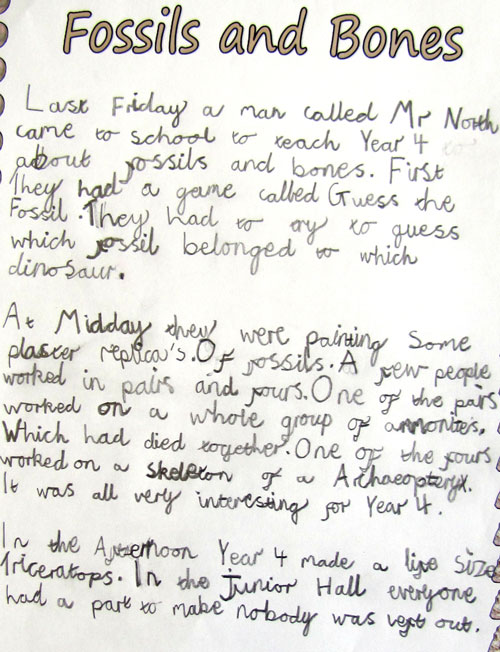 Fossils and Bones
Last Friday a man called Mr North
came to school to teach Year 4 to
about fossils and bones. First
They had a game called Guess the
Fossil. They had to try to guess
which fossil belonged to which
dinosaur.
At Midday they were painting some
plaster replica's. Of fossils. A few people
worked in pairs and fours. One of the pairs
worked on a whole group of ammonites.
Which had died together. One of the fours
worked on a skeleton of a Archaeopteryx.
It was all very interesting for Year 4.
In the Afternoon Year 4 made a life size
Triceratops. In the Junior Hall everyone
had a part to make nobody was left out.